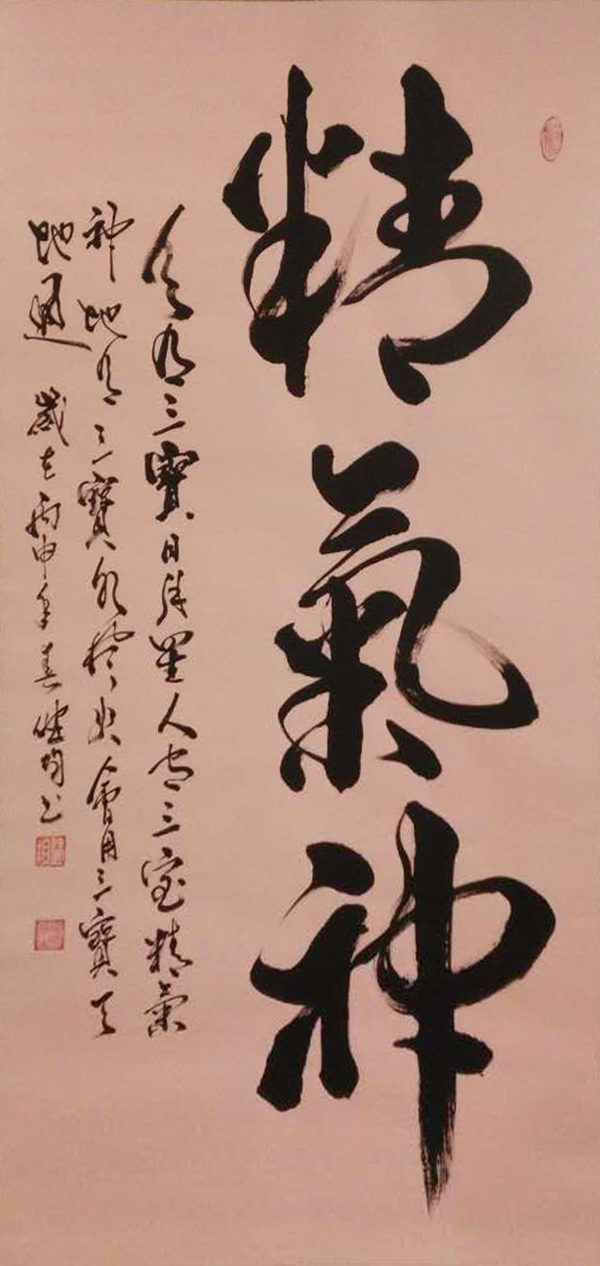 精氣神
天有三寶日月星人有三寶精氣
神地有三寶水火會用三寶天
地通 歲在丙申年春书